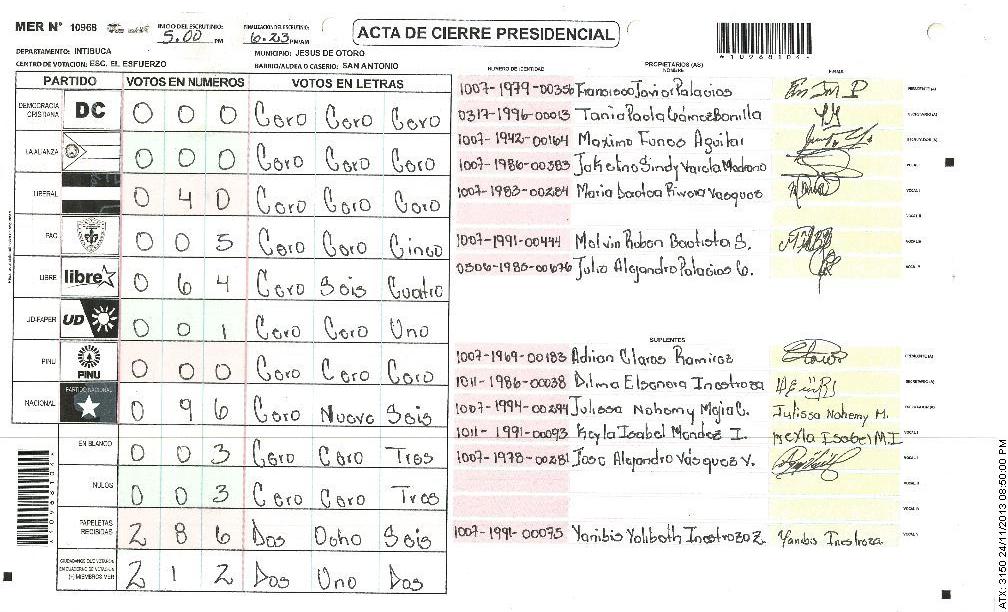 MER N° 10968
INICIO DEL ESCRUTINIO: 5.00 PM
FINALIZACION DEL ESCRUTINIO: 6.23 PM/AM
ACTA DE CIERRE PRESIDENCIAL
DEPARTAMENTO: INTIBUCA
MUNICIPIO: JESUS DE OTORO
CENTRO DE VOTACION: ESC. EL ESFUERZO
BARRIO/ALDEA O CASERIO: SAN ANTONIO
PARTIDO VOTOS EN NUMEROS VOTOS EN LETRAS
DEMOCRACIA CRISTIANA DC 0 0 0 Cero Cero Cero
LA ALIANZA 0 0 0 Cero Cero Cero
LIBERAL 0 4 0 Cero Cero Cero
PAC 0 0 5 Cero Cero Cinco
LIBRE libre 0 6 4 Cero Seis Cuatro
UD-FAPER UD 0 0 1 Cero Cero Uno
PINU PINU 0 0 0 Cero Cero Cero
NACIONAL PARTIDO NACIONAL 0 9 6 Cero Nueve Seis
EN BLANCO 0 0 3 Cero Cero Tres
NULOS 0 0 3 Cero Cero Tres
PAPELETAS RECIBIDAS 2 8 6 Dos Ocho Seis
CIUDADANOS QUE VOTARON EN CUADERNO DE VOTACION (+) MIEMBROS MER 2 1 2 Dos Uno Dos
NUMERO DE IDENTIDAD
PROPIETARIOS (AS)
NOMBRE
FIRMA
1007-1979-00356 Francisco Javier Palacios
0317-1996-00013 Tania Paola Gámez Bonilla
1007-1942-00164 Maximo Funes Aguilar
1007-1986-00383 Jakeline Sindy Varela Medrano
1007-1983-00284 Rivera Vasquez
1007-1991-00444 Melvin Ruben Bautista S.
0506-1985-00676 Julio Alejandro Palacios G.
SUPLENTES
1007-1969-00183 Adrian Claros Ramirez
1011-1986-00038 Dilma Eleonora Inestroza
1007-1994-00294 Julissa Nohemy Mejia C. Julissa Nohemy M.
1011-1991-00093 Keyla Isabel Mendez I. Keyla Isabel M.I
1007-1978-00281 Jose Alejandro Vásquez V.
1007-1991-00075 Yamibis Yolibeth Inestroza Z. Yamibis Inestroza
*10968104*
ATX: 3150 24/11/2013 08:50:00 PM